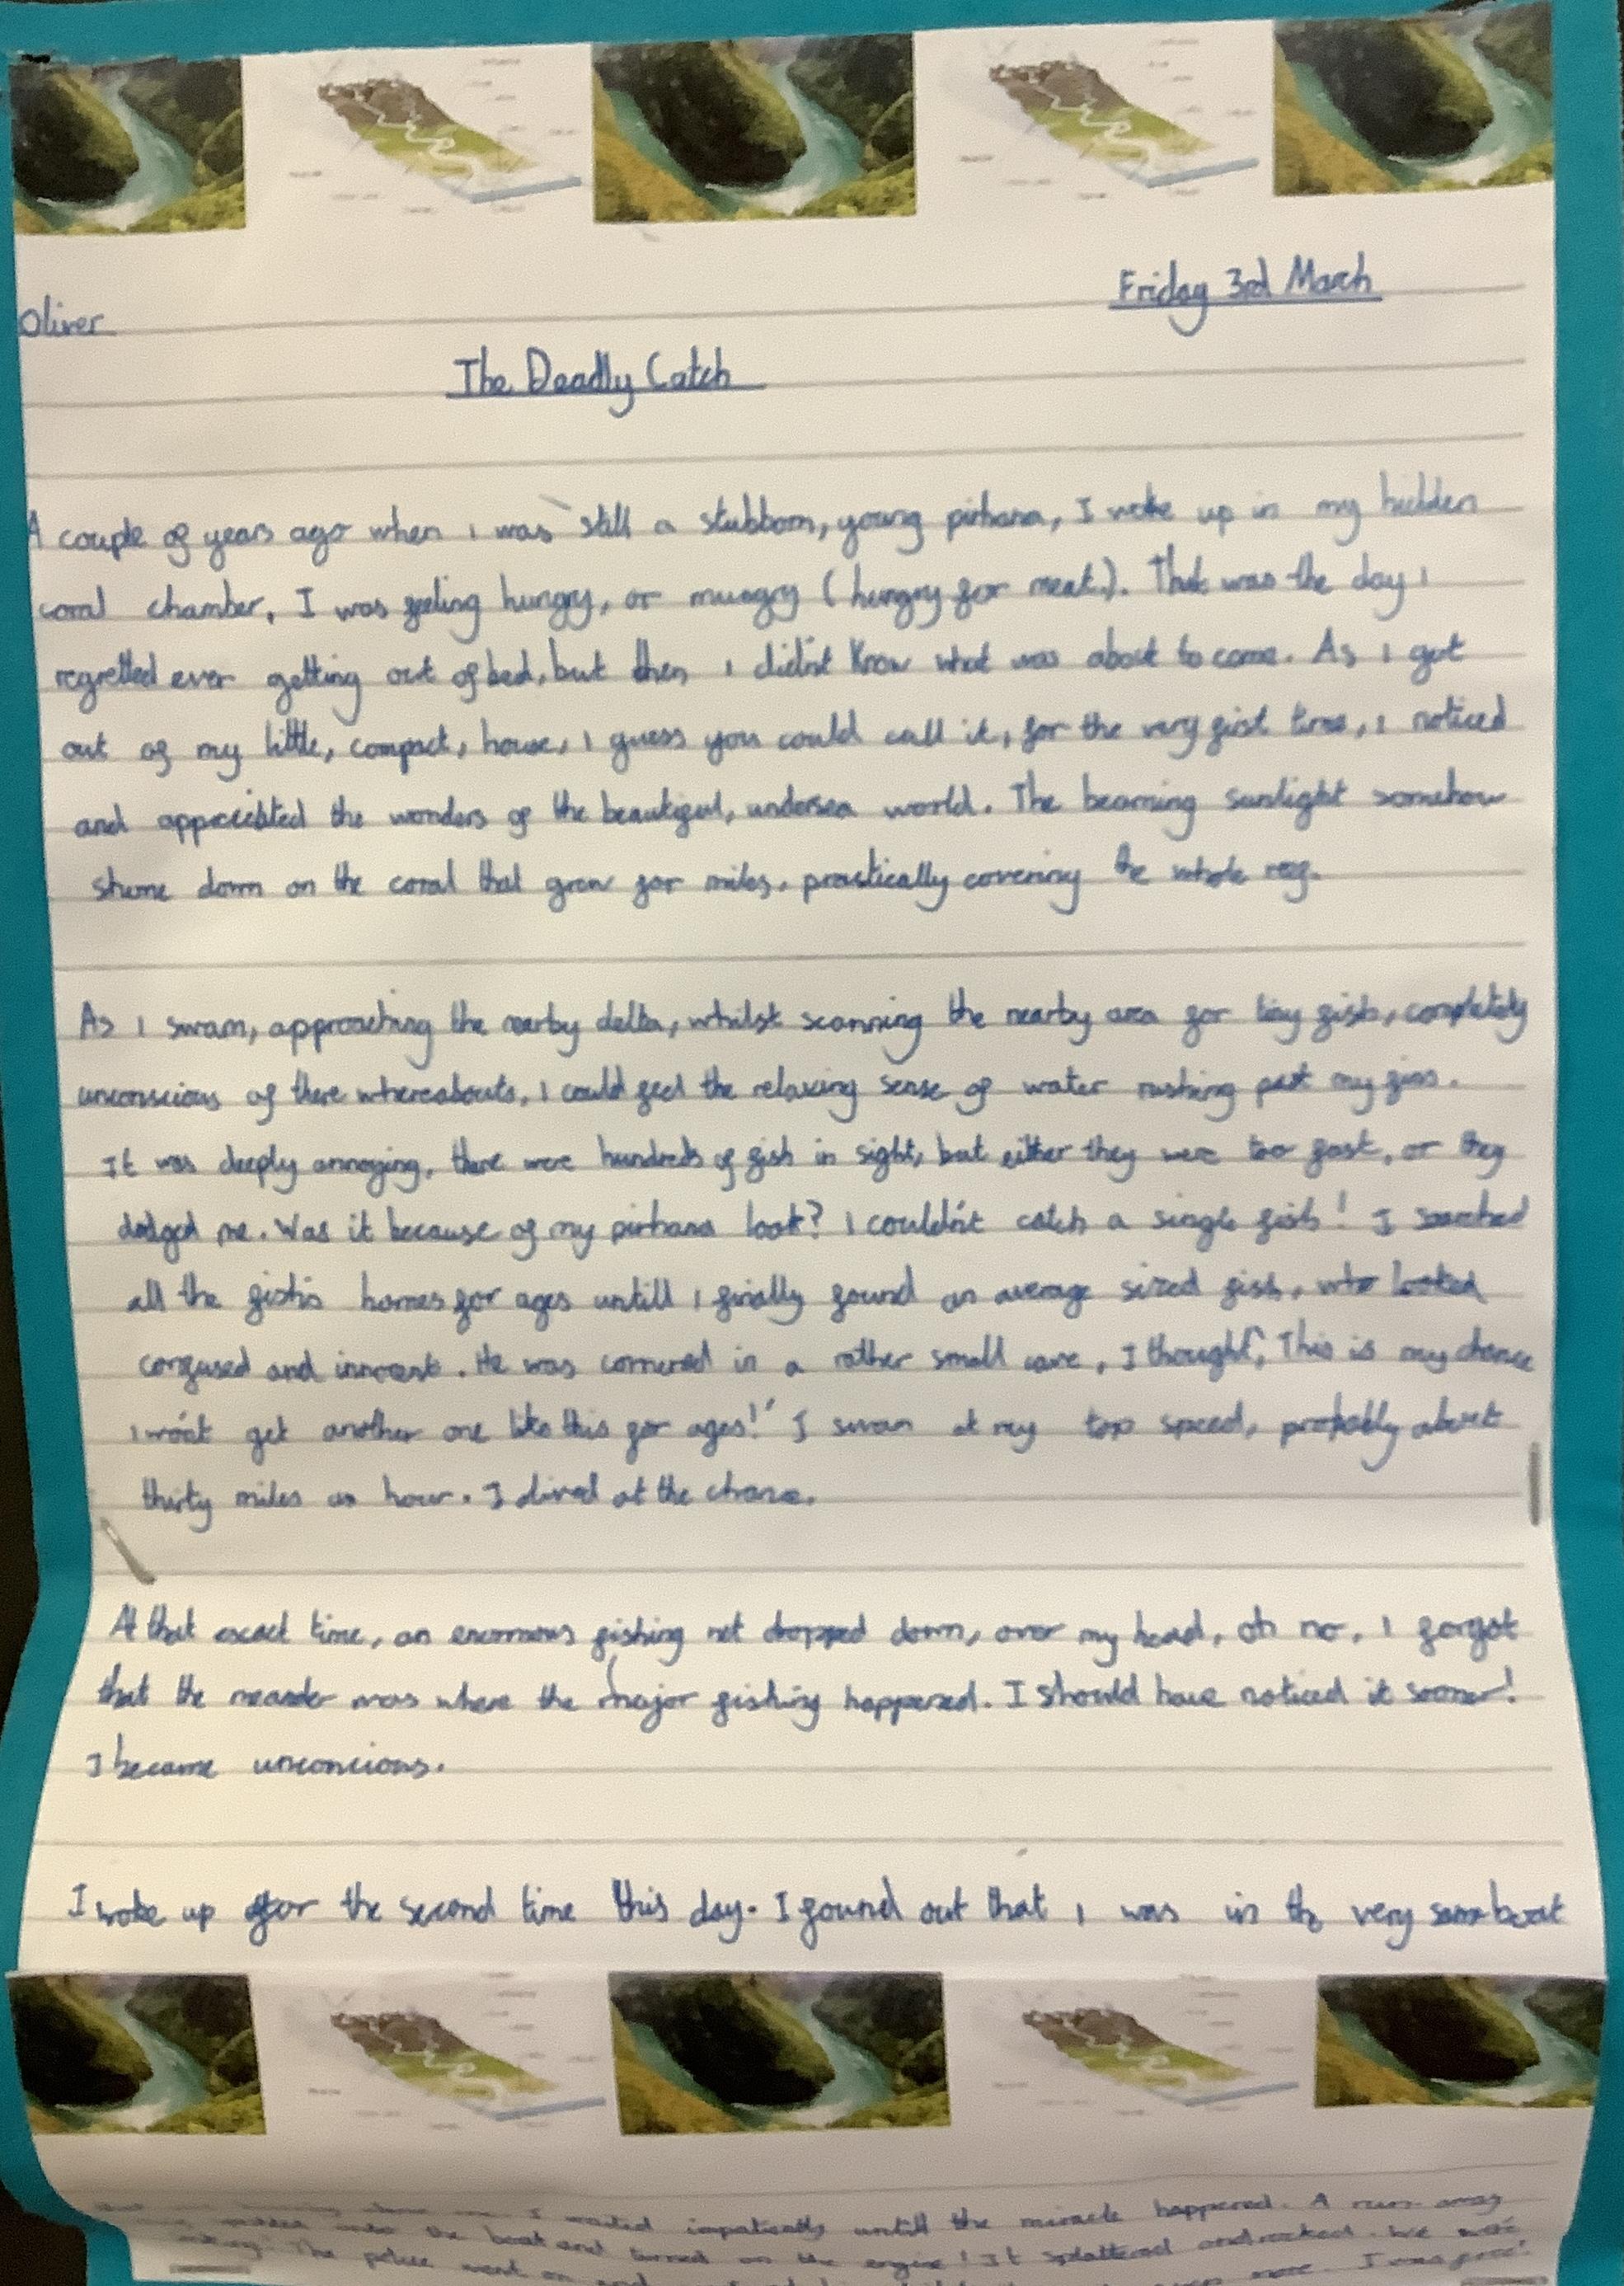 Friday 3rd March
Oliver
The Deadly Catch
A couple of years ago when I was still a stubborn, young pirhana, I woke up in my hidden
coral chamber, I was feeling hungry, or mungry (hungry for meat.). That was the day I
regretted ever getting out of bed, but then I didn't know what was about to come. As I got
out of my little, compact, house, I guess you could call it, for the very first time, I noticed
and the wonders of the beautiful, undersea world. The beaming sunlight somehow
shone down on the coral that grew for miles, practically covering the whole reef.
As I swam, approaching the nearby delta, whilst scanning the nearby area for tiny fish, completely
unconscious of there whereabouts, I could feel the relaxing sense of water rushing past my fins.
It was deeply annoying, there were hundreds of fish in sight, but either they were too fast, or they
dodged me. Was it because of my pirhana look? I couldn't catch a single fish! I searched
all the fish's homes for ages untill I finally found an average sized fish, who looked
confused and innocent. He was cornered in a rather small cave, I thought, 'This is my chance
I won't get another one like this for ages!' I swam at my top speed, probably about
thirty miles an hour. I dived at the chance.
At that exact time, an enormous fishing net dropped down, over my head, oh no, I forgot
that the meander was where the major fishing happened. I should have noticed it sooner!
I became unconcious.
I woke up for the second time this day. I found out that I was in the very same boat
I waited impatically untill the miracle happened. A run away
onto the boat and turned on the engine! It splattered and rocked. We were
The police went on